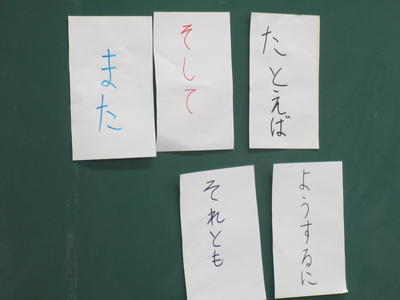 また
そして
たとえば
それとも
ようするに